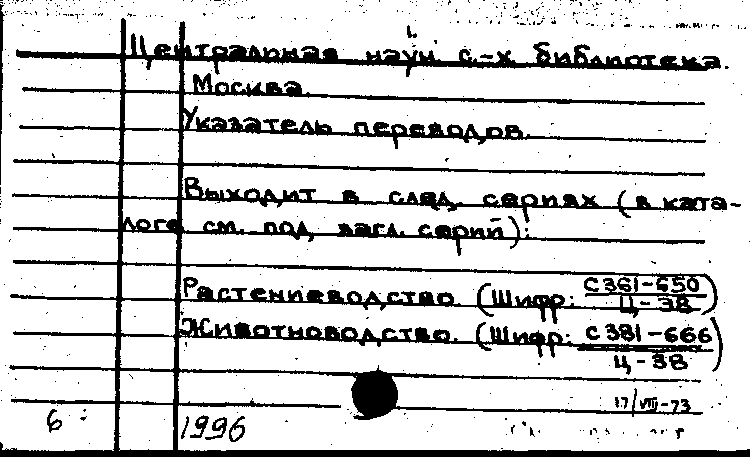 Центральная научн. с.-х. библиотека.
Москва.
Указатель переводов.
Выходит в след. сериях (в ката-
логе см. под загл. серий):
Растениеводство. (Шифр: С361-650
Ц-38)
Животноводство. (Шифр: С381-666
Ц-38)
17/VIII-73
6
1996